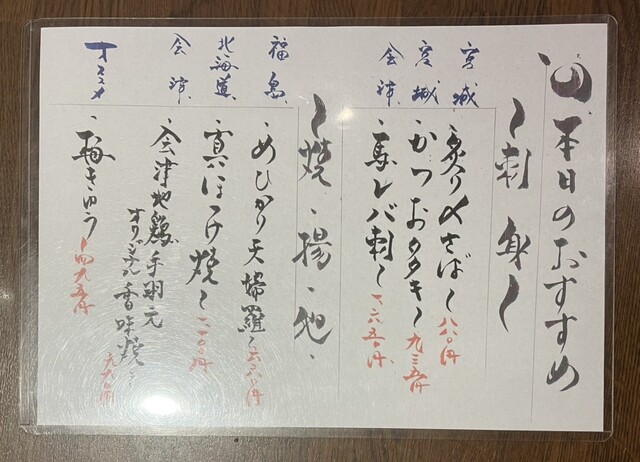 本日のおすすめ
〜刺身〜
宮城
炙り〆さば〜八八〇円
宮城
かつおタタキ〜九三五円
会津
馬レバ刺〜一六五〇円
〜焼・揚・他・
福島
めひかり天婦羅〜六六〇円
北海道
真ほっけ焼〜一一〇〇円
会津
会津地鶏手羽元
オリジナル香味焼〜九九〇円
オススメ
梅きゅう〜四九五円